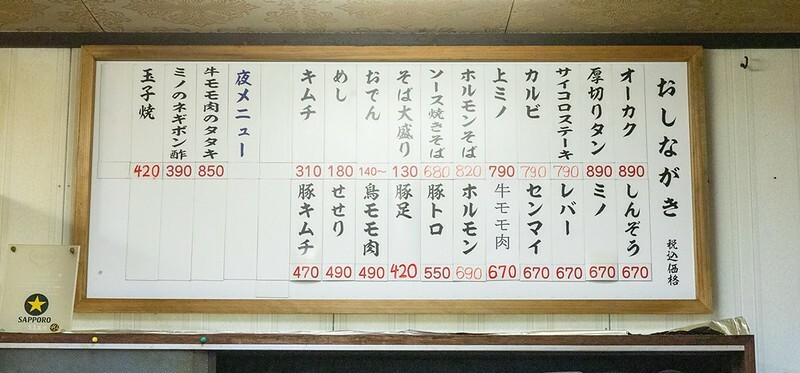 おしながき 税込価格
オーカク 890
厚切りタン 890
サイコロステーキ 790
カルビ 790
上ミノ 790
ホルモンそば 820
ソース焼きそば 680
そば大盛り 130
おでん 140〜
めし 180
キムチ 310
夜メニュー
牛モモ肉のタタキ 850
ミノのネギポン酢 390
玉子焼 420
しんぞう 670
ミノ 670
レバー 670
センマイ 670
牛モモ肉 670
ホルモン 690
豚トロ 550
豚足 420
鳥モモ肉 490
せせり 490
豚キムチ 470
SAPPORO